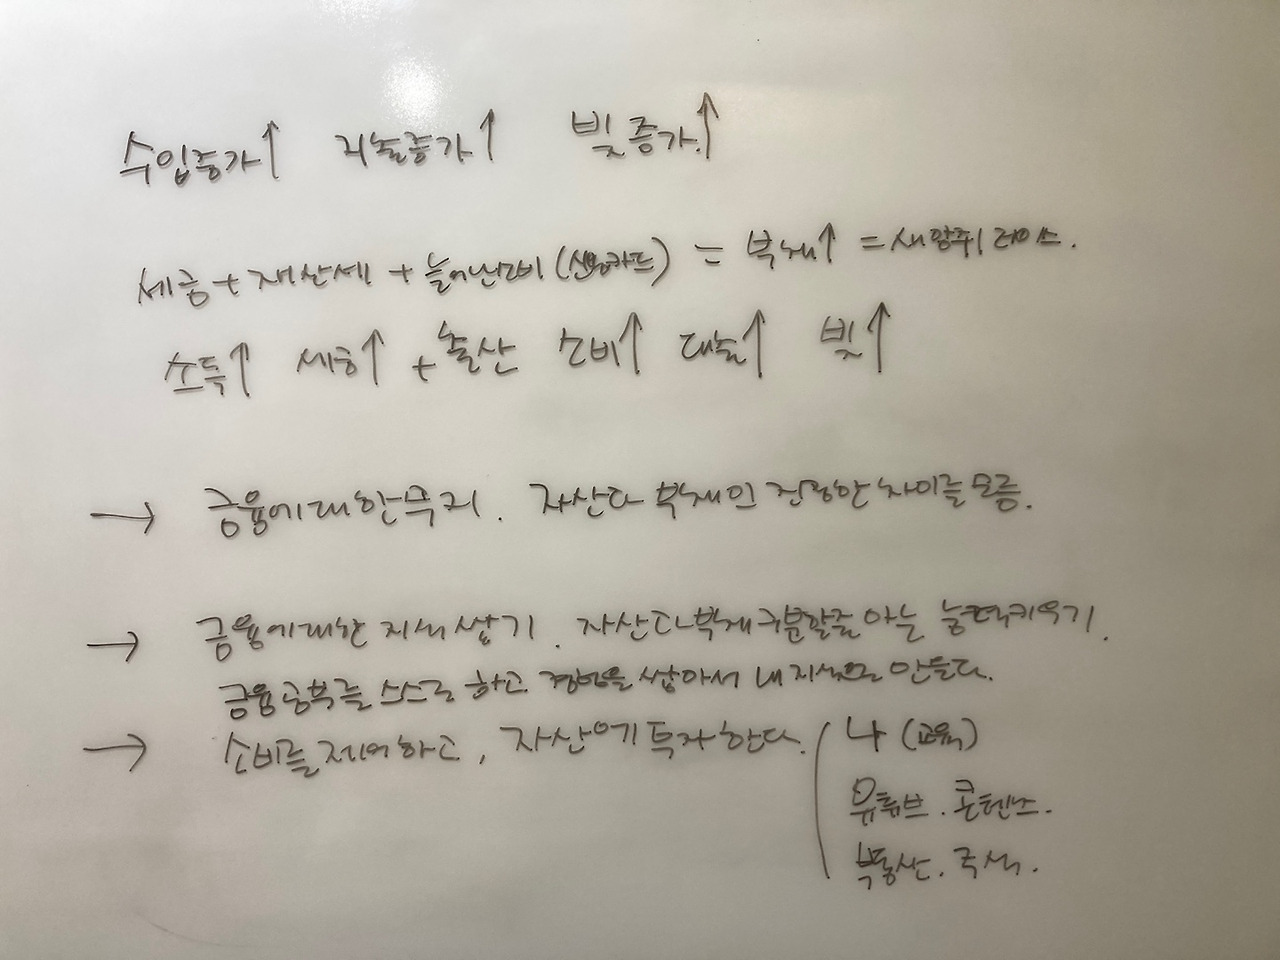 수입증가↑ 지출증가↑ 빚증가↑
세금 + 재산세 + 늘어난소비 (신용카드) = 부채↑ = 새앙쥐레이스.
소득↑ 세금↑ + 출산 소비↑ 대출↑ 빚↑
→ 금융에대한무지. 자산과 부채의 진정한 차이를 모름.
→ 금융에대한 지식쌓기. 자산과부채구분할줄아는 능력키우기.
금융공부를 스스로 하고 경험을 쌓아서 내지식으로 만들다.
→ 소비를 제어하고, 자산에 투자한다. 나 (교육)
유튜브. 콘텐츠.
부동산. 주식.